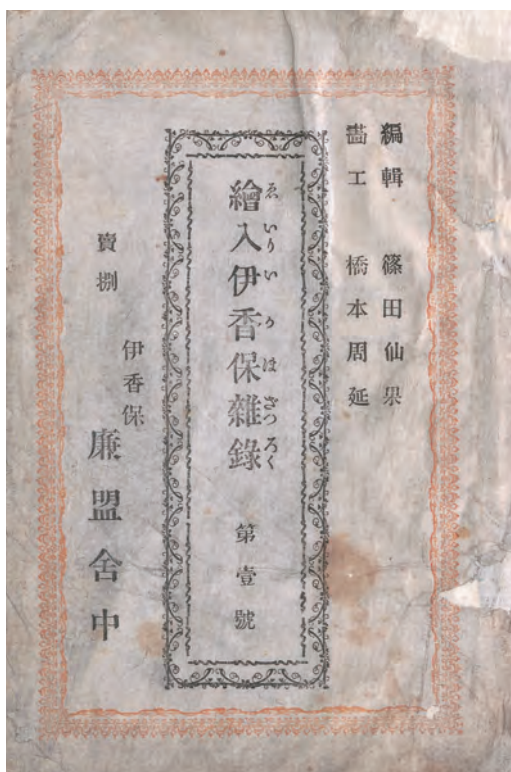 編輯 篠田仙果
畵工 橋本周延
繪入伊香保雜錄 第壹號
ゑ いり い か ほ ざつ ろく
賣捌
伊香保
廉盟舍中